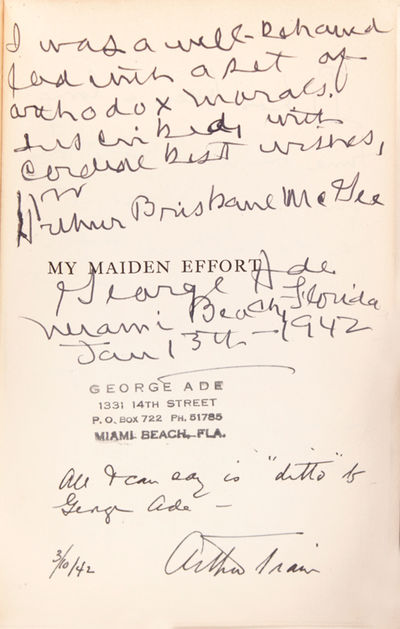 I was a well-behaved
lad with a set of
orthodox morals.
Inscribed, with
cordial best wishes,
for
Arthur Brisbane McGee
MY MAIDEN EFFORT
George Ade
Miami Beach, Florida
Jan 13th - 1942
GEORGE ADE
1331 14TH STREET
P. O. BOX 722 PH. 51785
MIAMI BEACH, FLA.
All I can say is "ditto" to
George Ade —
3/10/42 Arthur Train